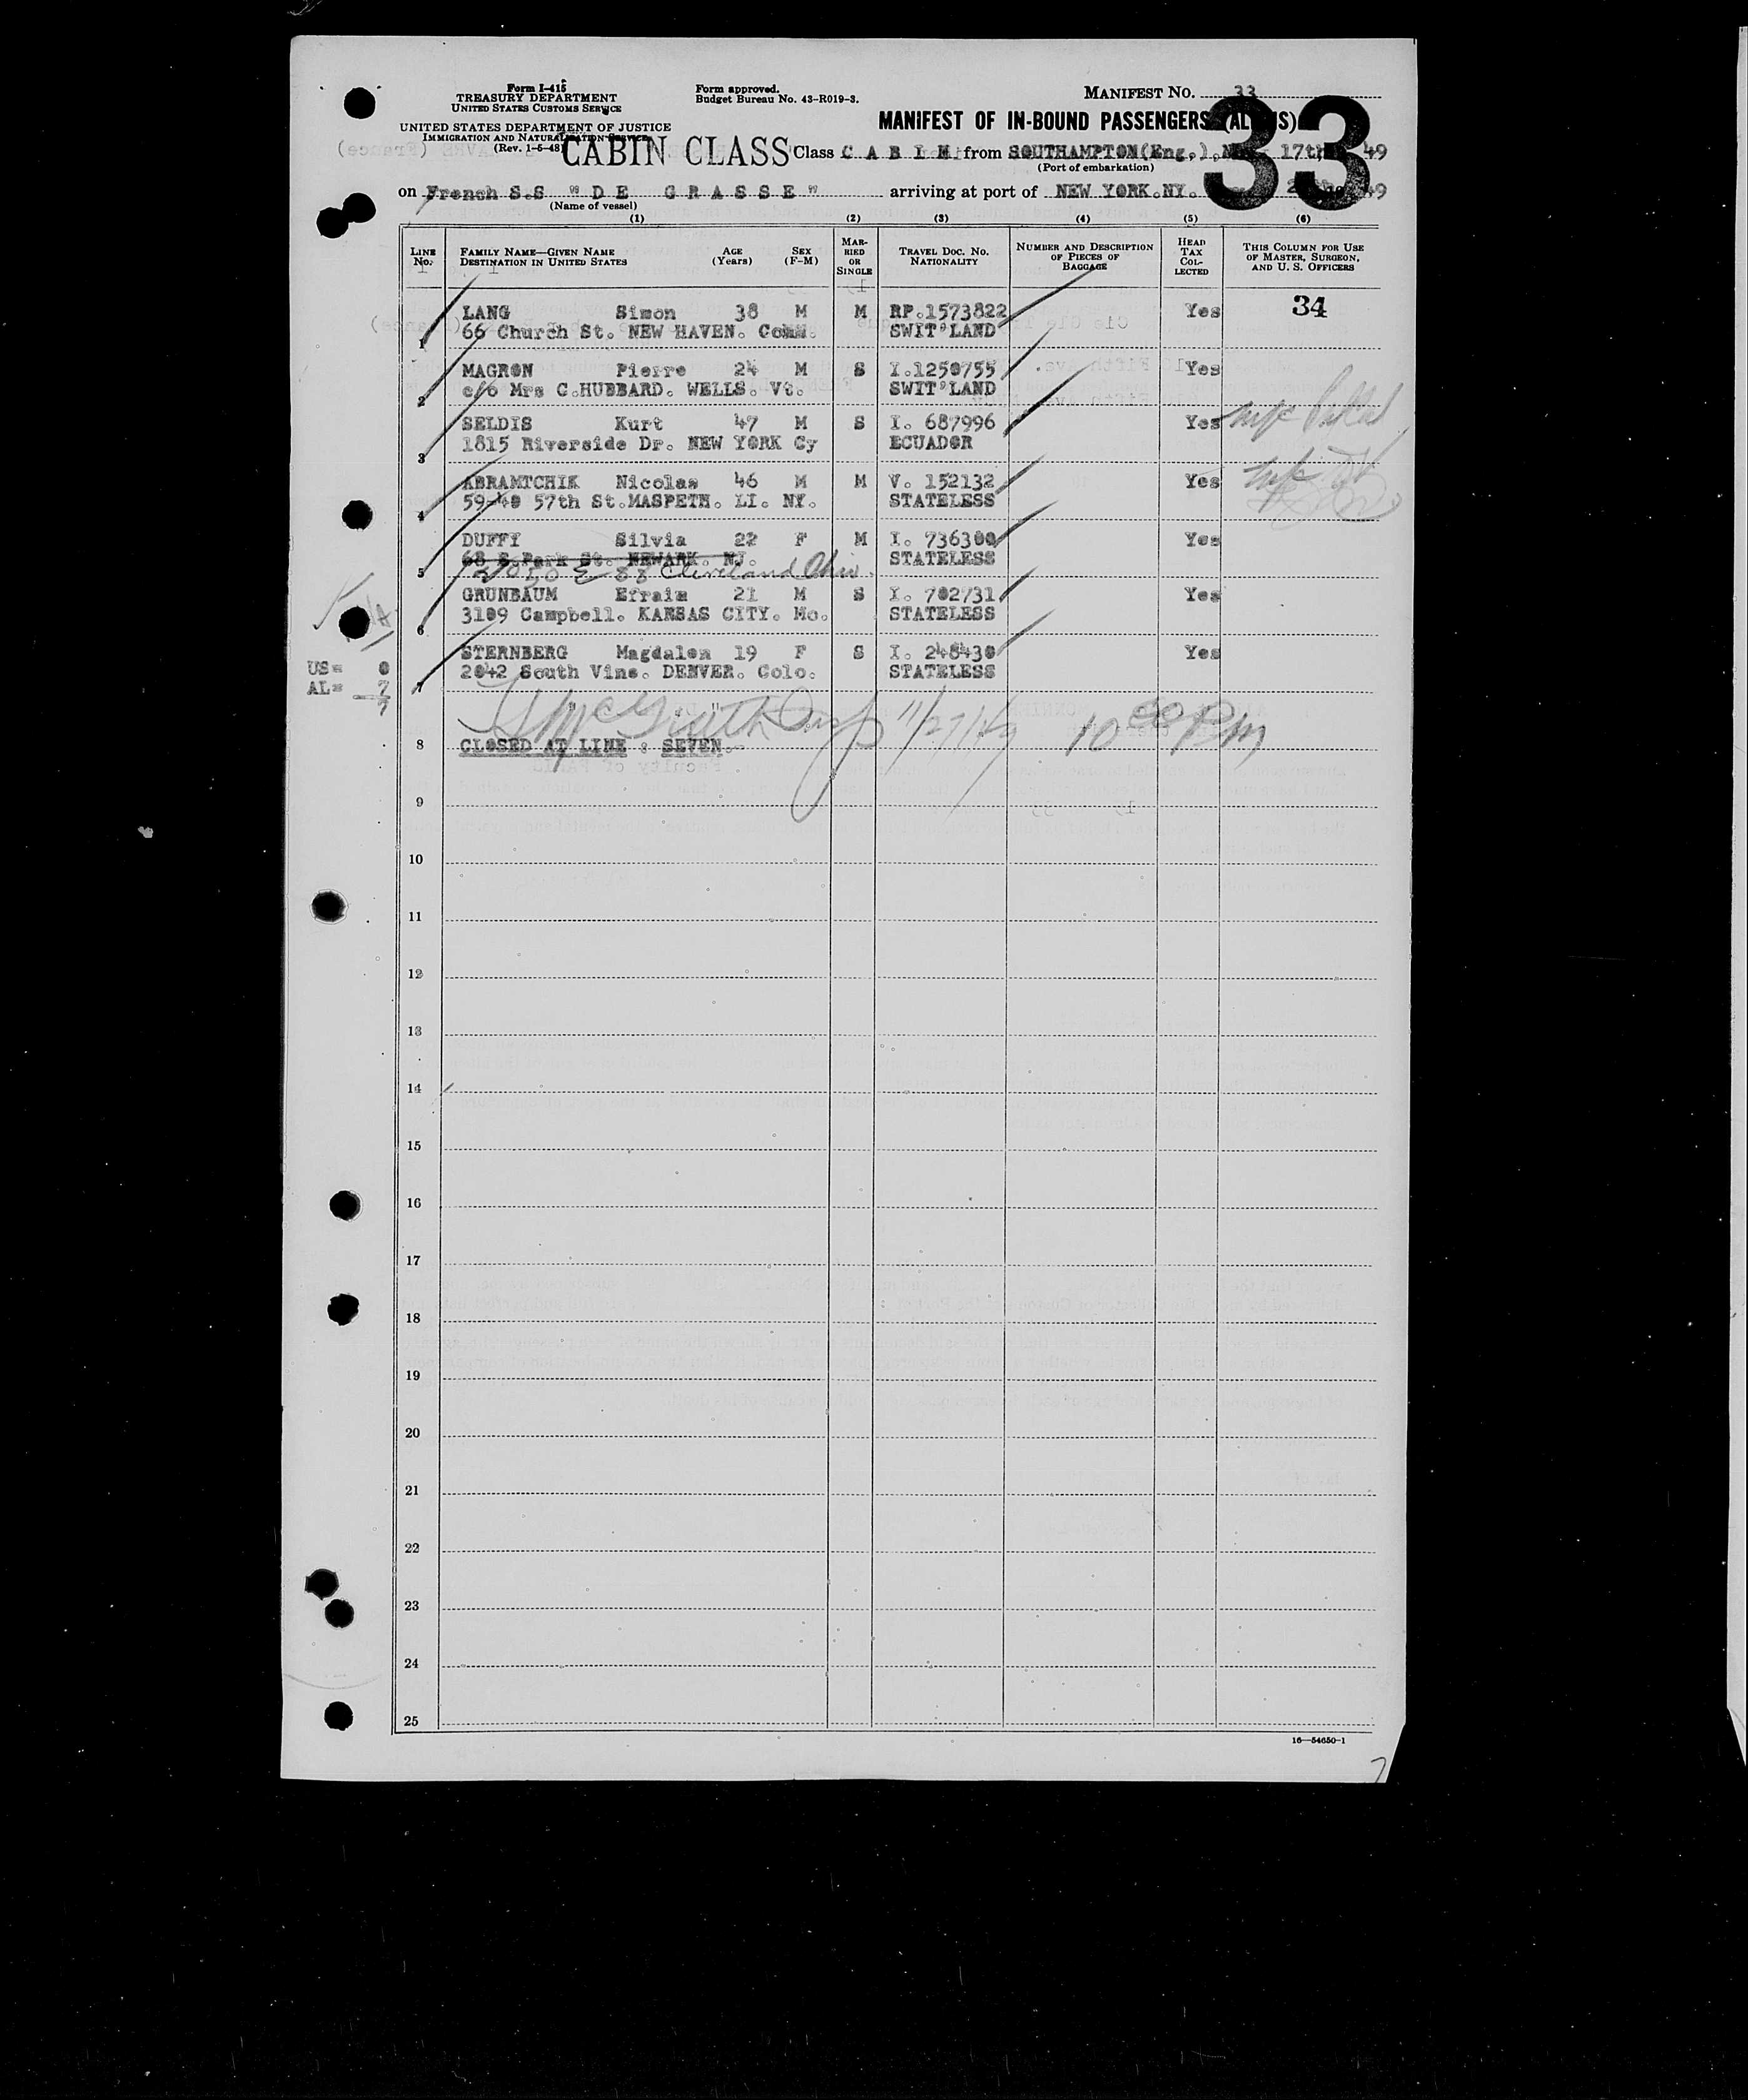 Form I-415
TREASURY DEPARTMENT
UNITED STATES CUSTOMS SERVICE
UNITED STATES DEPARTMENT OF JUSTICE
IMMIGRATION AND NATURALIZATION SERVICE
(Rev. 1-5-48)
Form approved.
Budget Bureau No. 43-R019-3.
MANIFEST No. 33
33
MANIFEST OF IN-BOUND PASSENGERS (ALIENS)
CABIN CLASS Class C A B I N from SOUTHAMPTON(Eng.), 17th 49
(Port of embarkation)
on French S.S "DE GRASSE" arriving at port of NEW YORK.NY. 49
(Name of vessel)
(1) (2) (3) (4) (5) (6)
LINE No. FAMILY NAME—GIVEN NAME DESTINATION IN UNITED STATES AGE (Years) SEX (F-M) MARRIED OR SINGLE TRAVEL DOC. NO. NATIONALITY NUMBER AND DESCRIPTION OF PIECES OF BAGGAGE HEAD TAX COLLECTED THIS COLUMN FOR USE OF MASTER, SURGEON, AND U. S. OFFICERS
34
LANG Simon 38 M M RP.1573822 Yes
1 66 Church St. NEW HAVEN. Conn. SWIT'LAND
MAGRON Pierre 24 M S I.1250755 Yes
2 c/o Mrs C.HUBBARD. WELLS. Vt. SWIT'LAND
SELDIS Kurt 47 M S I. 687996 Yes
3 1815 Riverside Dr. NEW YORK Cy ECUADOR
ABRAMTCHIK Nicolas 46 M M V. 152132 Yes
4 59-40 57th St.MASPETH. LI. NY. STATELESS
DUFFY Silvia 22 F M I. 736300 Yes
68 S.Park St. NEWARK. NJ. STATELESS
5 2050 E 88 Cleveland Ohio.
GRUNBAUM Efraim 21 M S I. 702731 Yes
6 3109 Campbell. KANSAS CITY. Mo. STATELESS
STERNBERG Magdalen 19 F S I. 248430 Yes
7 2042 South Vine. DENVER. Colo. STATELESS
US= 0
AL= 7
7
11/27/49 10 00 PM
8 CLOSED AT LINE : SEVEN.-
9
10
11
12
13
14
15
16
17
18
19
20
21
22
23
24
25
16—54650-1
7